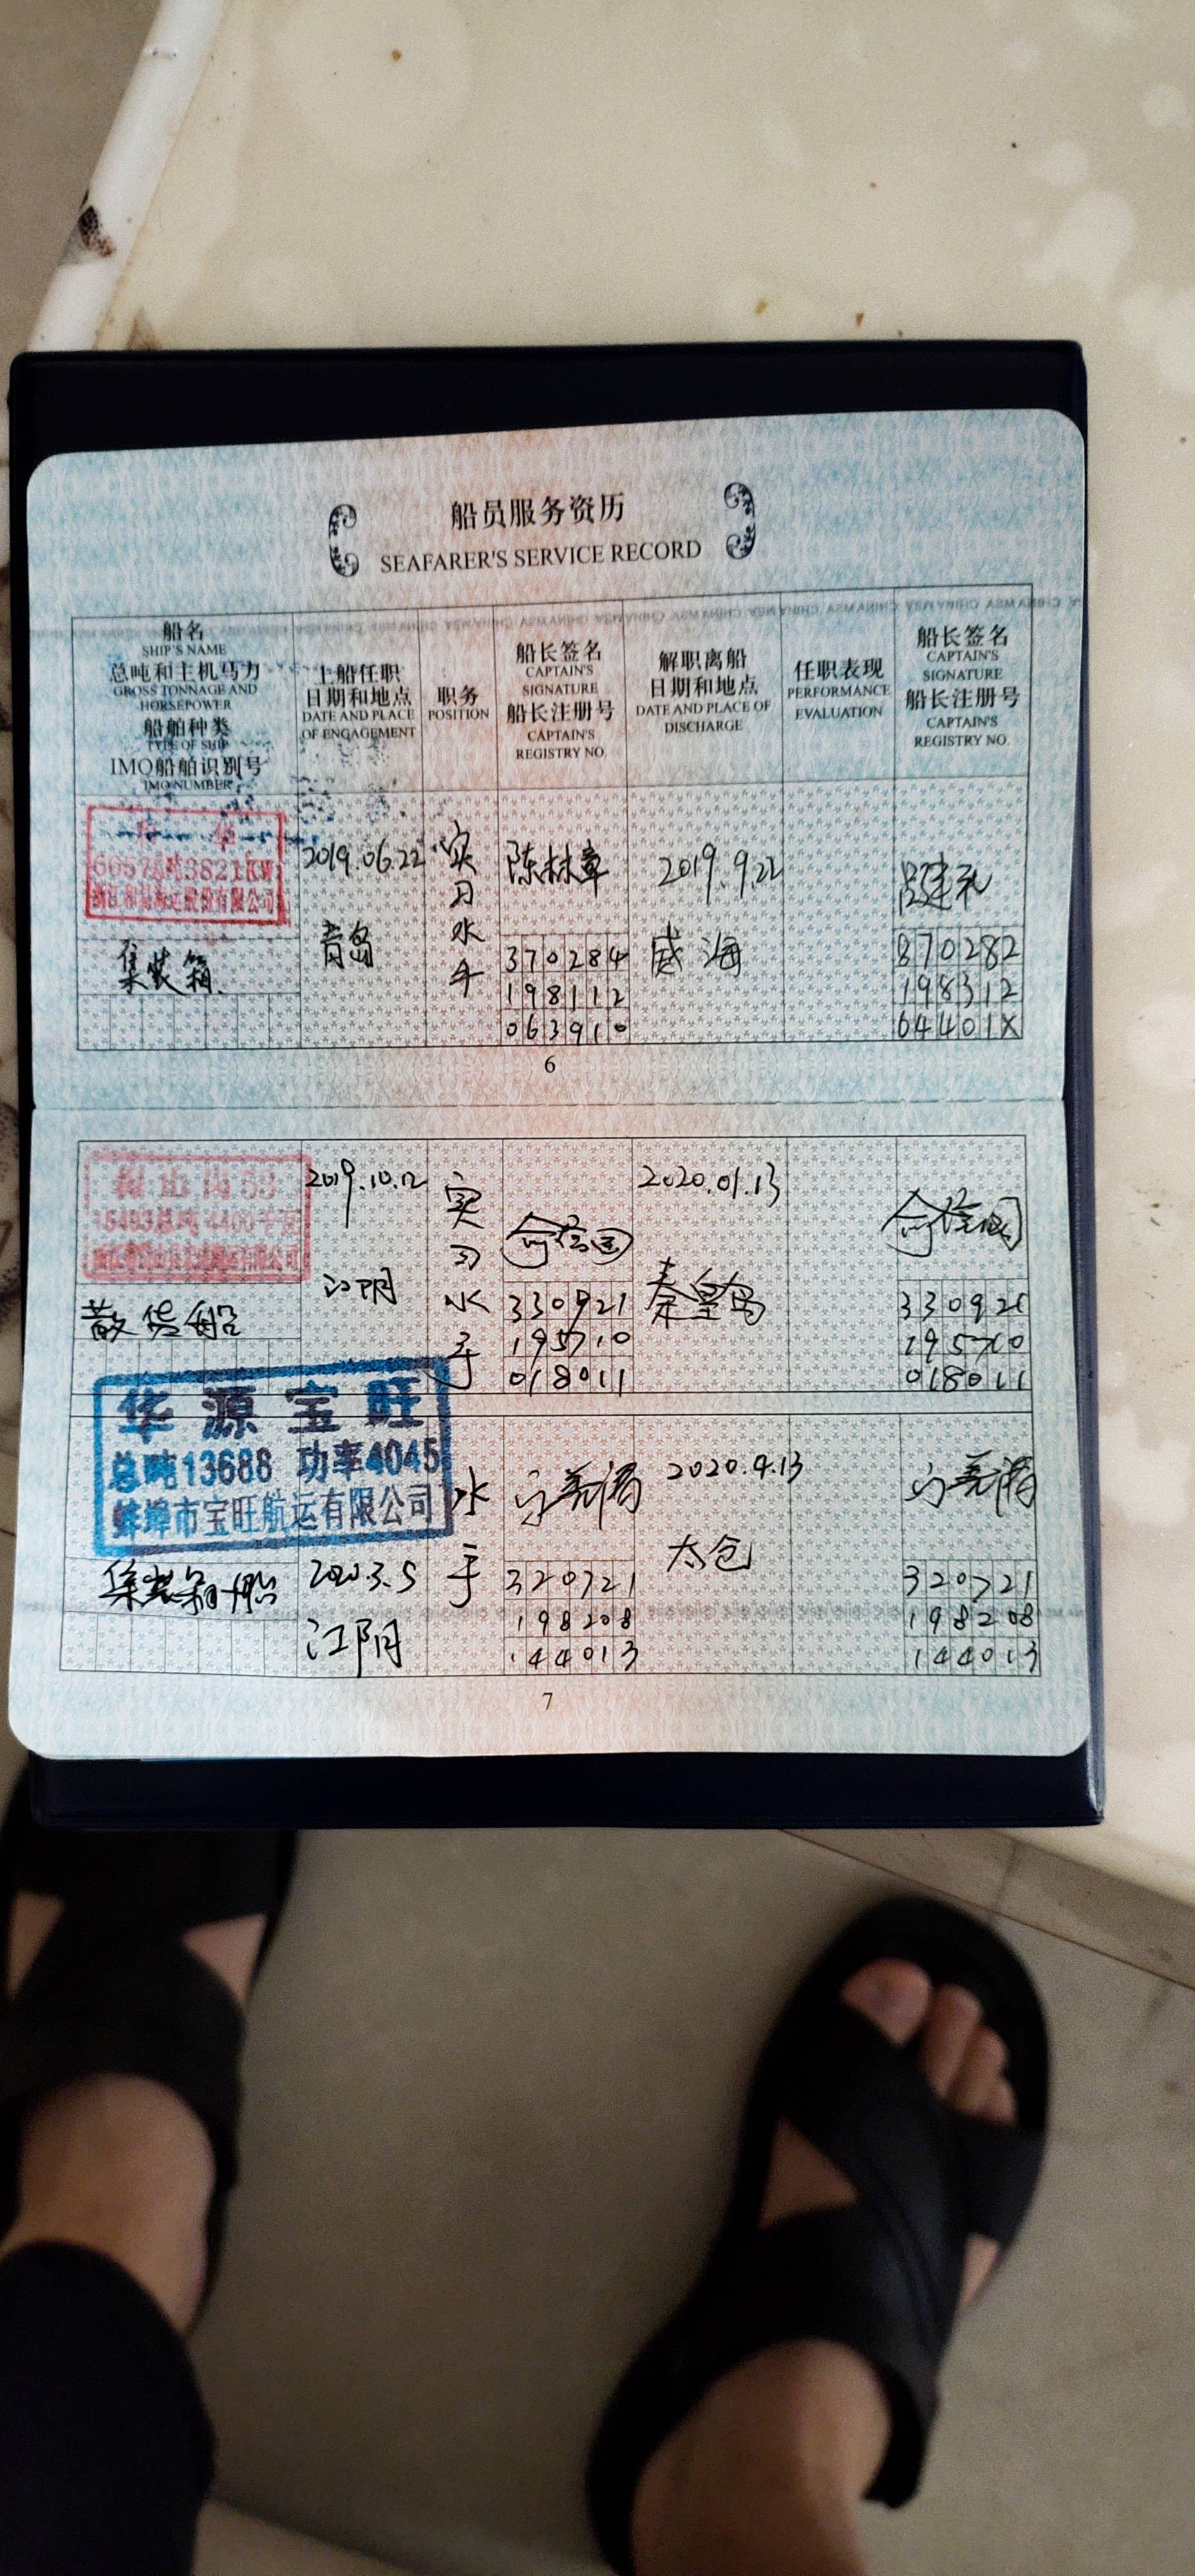 船员服务资历
SEAFARER'S SERVICE RECORD
船名
SHIP'S NAME
总吨和主机马力
GROSS TONNAGE AND
HORSEPOWER
船舶种类
TYPE OF SHIP
IMO船舶识别号
IMO NUMBER
上船任职
日期和地点
DATE AND PLACE
OF ENGAGEMENT
职务
POSITION
船长签名
CAPTAIN'S
SIGNATURE
船长注册号
CAPTAIN'S
REGISTRY NO.
解职离船
日期和地点
DATE AND PLACE OF
DISCHARGE
任职表现
PERFORMANCE
EVALUATION
船长签名
CAPTAIN'S
SIGNATURE
船长注册号
CAPTAIN'S
REGISTRY NO.
集装箱
2019.06.22
青岛
实习水手
陈林章
370284
198112
063910
2019.9.22
威海
370282
198312
64401X
6
散货船
2019.10.12
江阴
实习水手
330921
195710
018011
2020.01.13
秦皇岛
330921
195710
018011
华源宝旺
总吨13688 功率4045
蚌埠市宝旺航运有限公司
集装箱船
2020.3.5
江阴
水手
320721
198208
144013
2020.4.13
太仓
320721
198208
144013
7